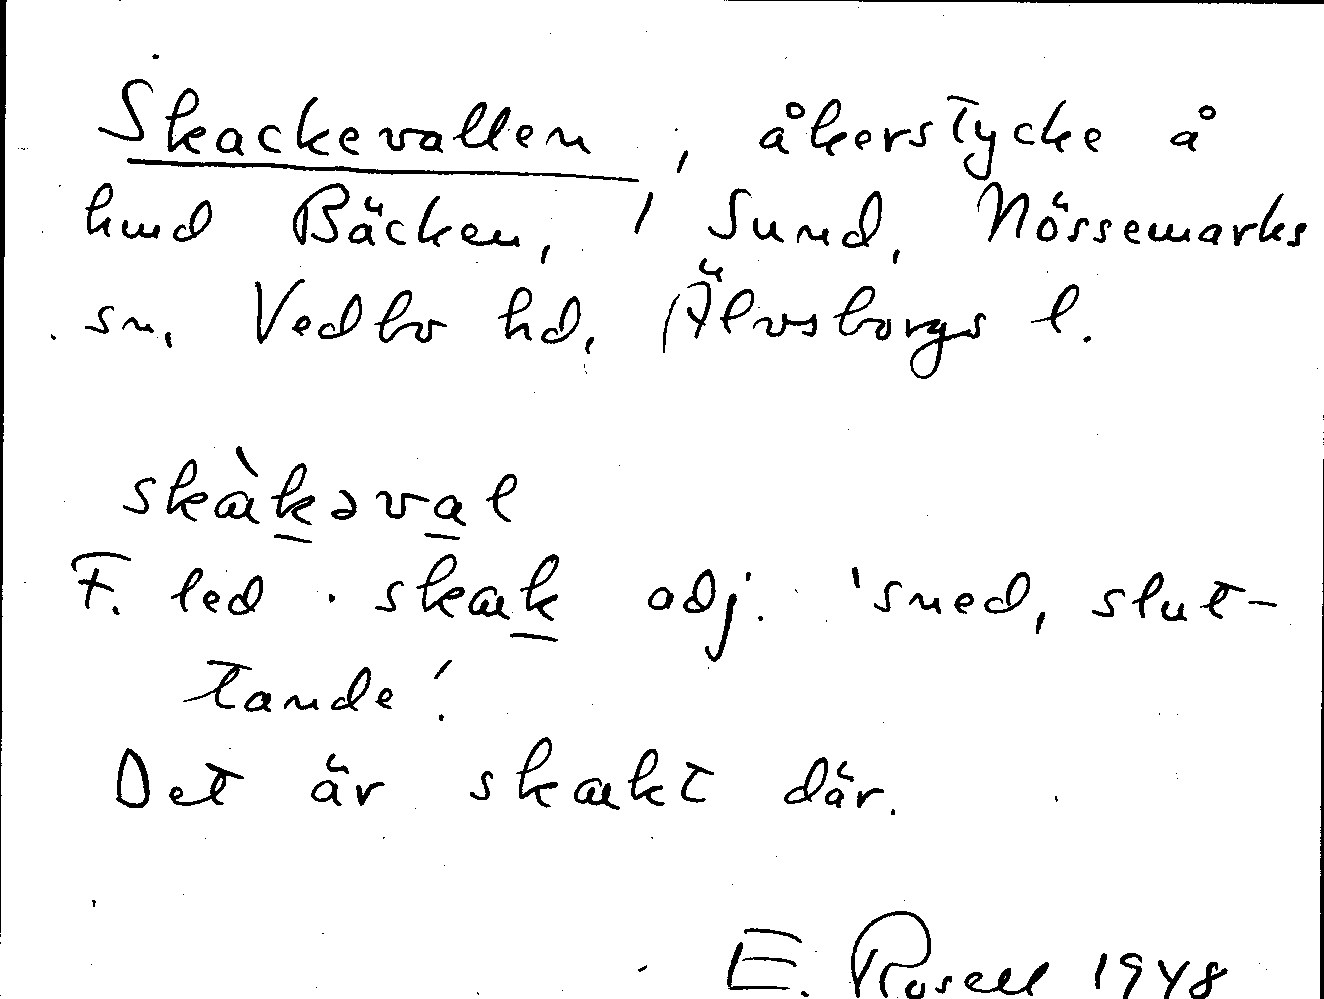 Skackevallen, åkerstycke å
hmd Bäcken, Sund, Nössemarks
sn, Vedbo hd, Älvsborgs l.
skàkəval
F. led. skak adj. 'sned, slut-
tande'.
Det är skakt där.
E. Rosell 1948